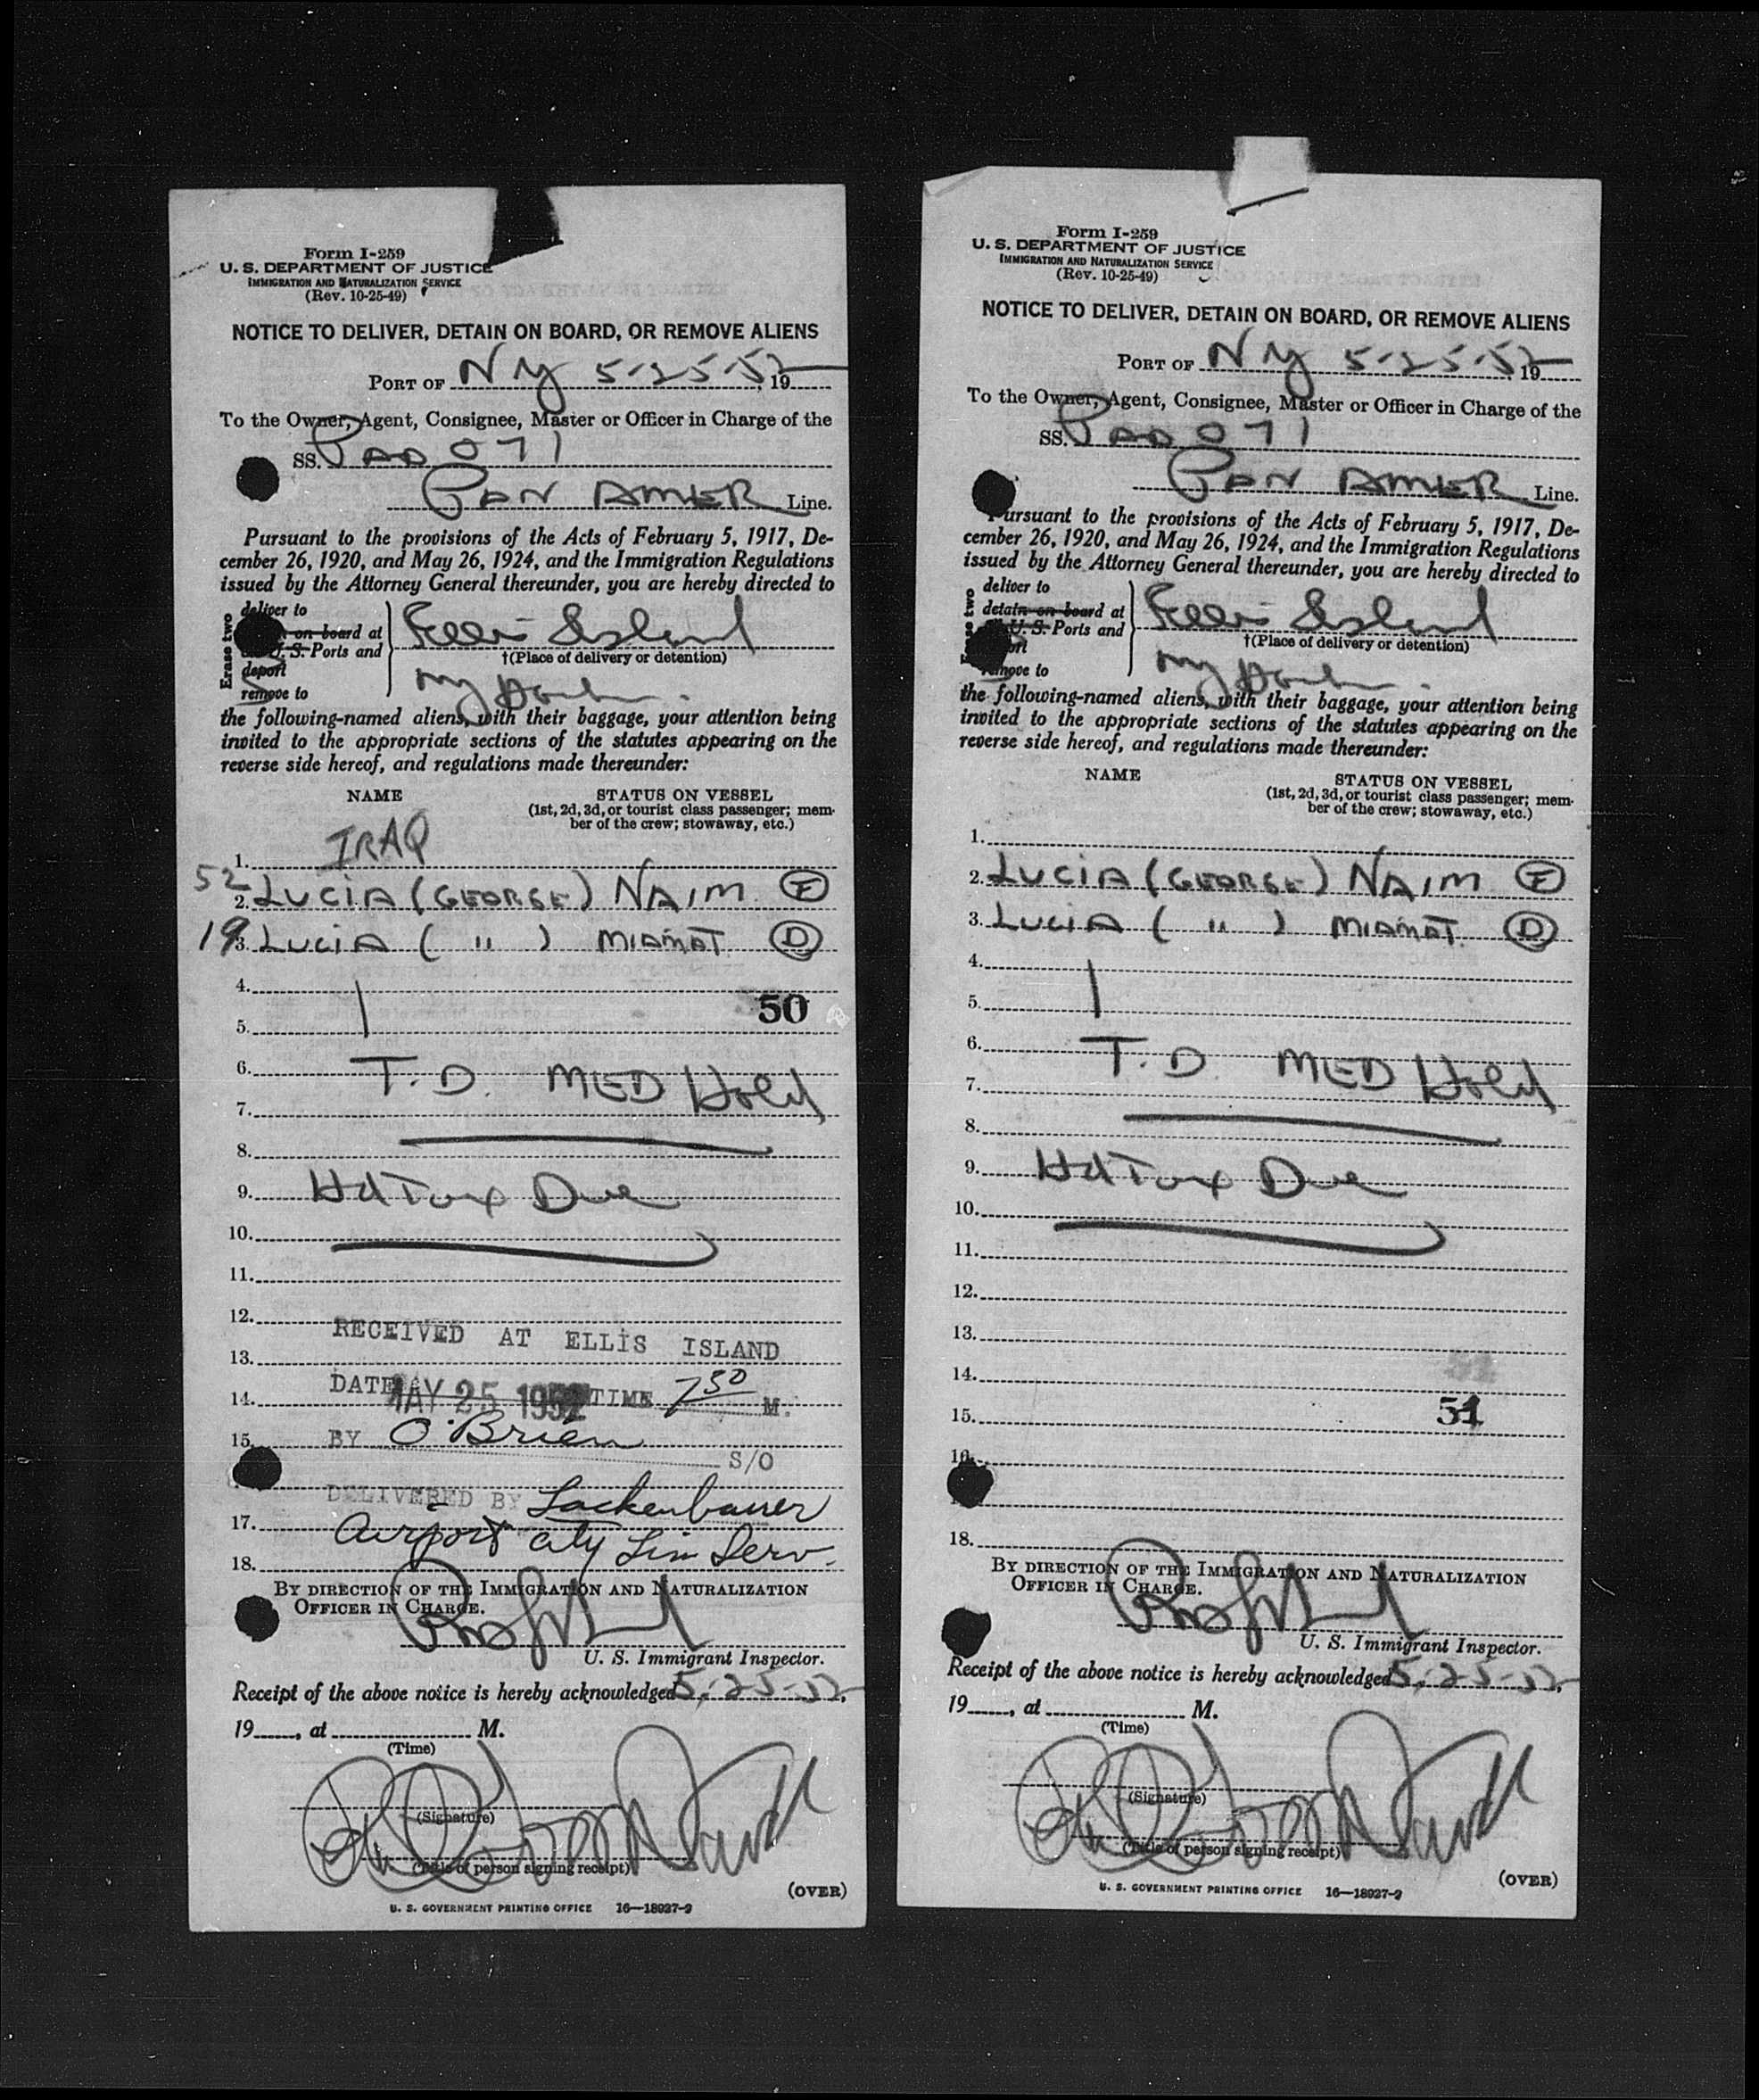 Form I-259
U. S. DEPARTMENT OF JUSTICE
IMMIGRATION AND NATURALIZATION SERVICE
(Rev. 10-25-49)
NOTICE TO DELIVER, DETAIN ON BOARD, OR REMOVE ALIENS
PORT OF NY 5-25-52, 19
To the Owner, Agent, Consignee, Master or Officer in Charge of the
SS. PAA 071
PAN AMER Line.
Pursuant to the provisions of the Acts of February 5, 1917, De-
cember 26, 1920, and May 26, 1924, and the Immigration Regulations
issued by the Attorney General thereunder, you are hereby directed to
Erase two
deliver to
on board at
U. S. Ports and
deport
remove to
Ellis Island
†(Place of delivery or detention)
NY
the following-named aliens, with their baggage, your attention being
invited to the appropriate sections of the statutes appearing on the
reverse side hereof, and regulations made thereunder:
NAME
STATUS ON VESSEL
(1st, 2d, 3d, or tourist class passenger; mem-
ber of the crew; stowaway, etc.)
1. IRAQ
52 2. LUCIA (GEORGE) NAIM F
19 3. LUCIA ( " ) MIAMAT D
4.
50
5.
6. T.D. MED Hold
7.
8.
9. Hd Tax Due
10.
11.
12.
RECEIVED AT ELLIS ISLAND
13.
DATE MAY 25 1952 TIME 7 50 M.
14.
15. BY O'Brien
S/O
DELIVERED BY Lackenbauer
17. Airport City Lim Serv.
18.
BY DIRECTION OF THE IMMIGRATION AND NATURALIZATION
OFFICER IN CHARGE.
U. S. Immigrant Inspector.
Receipt of the above notice is hereby acknowledged 5-25-52,
19, at M.
(Time)
(Signature)
(Title of person signing receipt)
(OVER)
U. S. GOVERNMENT PRINTING OFFICE 16—18027-2
Form I-259
U. S. DEPARTMENT OF JUSTICE
IMMIGRATION AND NATURALIZATION SERVICE
(Rev. 10-25-49)
NOTICE TO DELIVER, DETAIN ON BOARD, OR REMOVE ALIENS
PORT OF NY 5-25-52, 19
To the Owner, Agent, Consignee, Master or Officer in Charge of the
SS. PAA 071
PAN AMER Line.
Pursuant to the provisions of the Acts of February 5, 1917, De-
cember 26, 1920, and May 26, 1924, and the Immigration Regulations
issued by the Attorney General thereunder, you are hereby directed to
two
deliver to
detain on board at
U. S. Ports and
remove to
Ellis Island
†(Place of delivery or detention)
NY
the following-named aliens, with their baggage, your attention being
invited to the appropriate sections of the statutes appearing on the
reverse side hereof, and regulations made thereunder:
NAME
STATUS ON VESSEL
(1st, 2d, 3d, or tourist class passenger; mem-
ber of the crew; stowaway, etc.)
1.
2. LUCIA (GEORGE) NAIM F
3. LUCIA ( " ) MIAMAT D
4.
5.
6. T.D. MED Hold
7.
8.
9. Hd Tax Due
10.
11.
12.
13.
14.
15. 51
16.
18.
BY DIRECTION OF THE IMMIGRATION AND NATURALIZATION
OFFICER IN CHARGE.
U. S. Immigrant Inspector.
Receipt of the above notice is hereby acknowledged 5-25-52,
19, at M.
(Time)
(Signature)
(Title of person signing receipt)
(OVER)
U. S. GOVERNMENT PRINTING OFFICE 16—18027-2